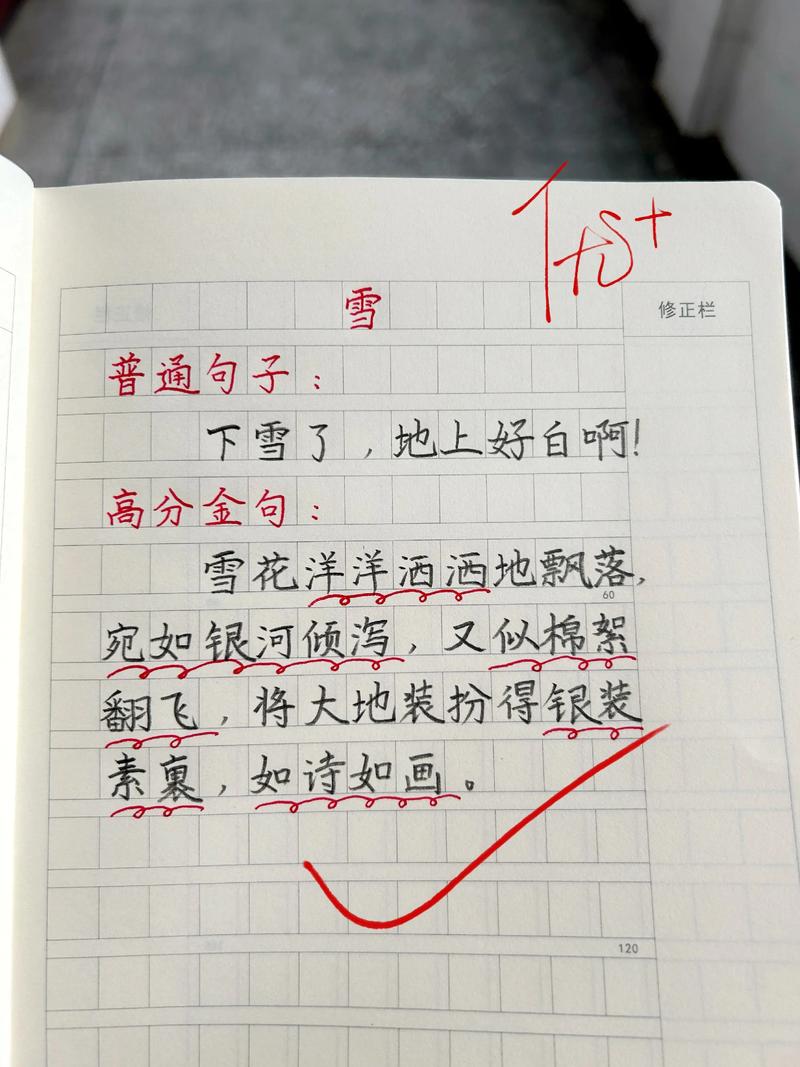 优+
雪
修正栏
普通句子：
下雪了，地上好白啊！
高分金句：
雪花洋洋洒洒地飘落，
60
宛如银河倾泻，又似棉絮
翻飞，将大地装扮得银装
素裹，如诗如画。
120